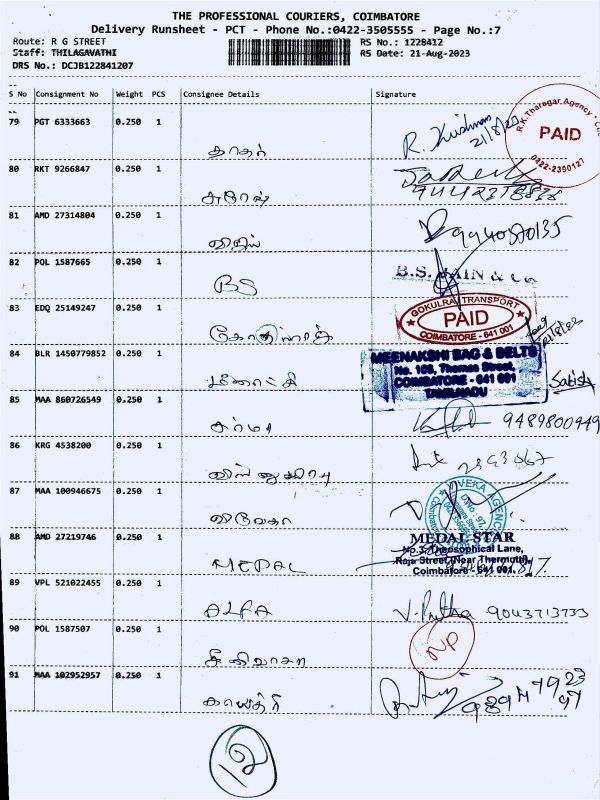 THE PROFESSIONAL COURIERS, COIMBATORE
Delivery Runsheet - PCT - Phone No.:0422-3505555 - Page No.:7
Route: R G STREET RS No.: 1228412
Staff: THILAGAVATHI RS Date: 21-Aug-2023
DRS No.: DCJB122841207
S No Consignment No Weight PCS Consignee Details Signature
79 PGT 6333663 0.250 1 R. Krishnan 21/8/23
PAID
0422-2390127
80 RKT 9266847 0.250 1 சுரேஷ்
81 AMD 27314804 0.250 1 விஜய்
82 POL 1587665 0.250 1 BS B.S. JAIN & Co
83 EDQ 25149247 0.250 1
GOKULRAJ TRANSPORT
PAID
COIMBATORE - 641 001
84 BLR 1450779852 0.250 1 மீனாட்சி
MEENAKSHI BAG & BELTS
No. 108, Thomas Street,
COIMBATORE - 641 001
TAMILNADU
Satish
85 MAA 860726549 0.250 1 சர்மா 9489800949
86 KRG 4538200 0.250 1
87 MAA 100946675 0.250 1 விவேகா
88 AMD 27219746 0.250 1 MEDAL
MEDAL STAR
No.3, Theosophical Lane,
Raja Street (Near Thermutti),
Coimbatore - 641 001.
89 VPL 521022455 0.250 1 ALFA 9043713733
90 POL 1587507 0.250 1 சீனிவாசா NP
91 MAA 102952957 0.250 1 காயத்ரி